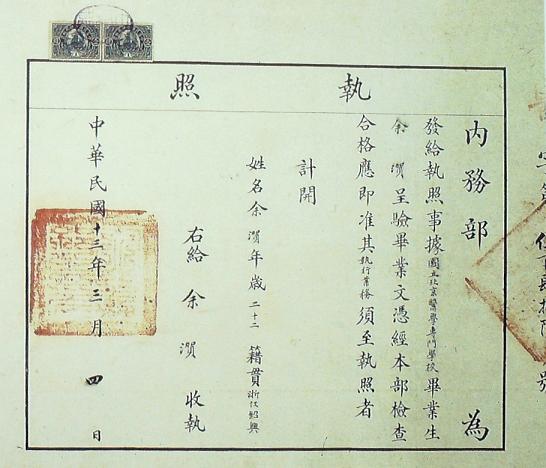 執照
內務部為
發給執照事據國立北京醫學專門學校畢業生
余 呈驗畢業文憑經本部檢查
合格應即准其執行業務須至執照者
計開
姓名余 年歲二十二 籍貫浙江紹興
右給 余 收執
中華民國十三年三月四日